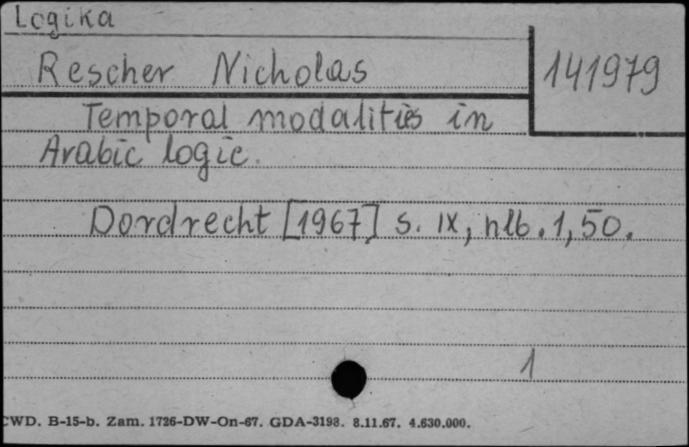 Logika
Rescher Nicholas
141979
Temporal modalities in
Arabic logic.
Dordrecht [1967] s. IX, nlb. 1,50.
1
CWD. B-15-b. Zam. 1726-DW-On-67. GDA-3198. 8.11.67. 4.630.000.